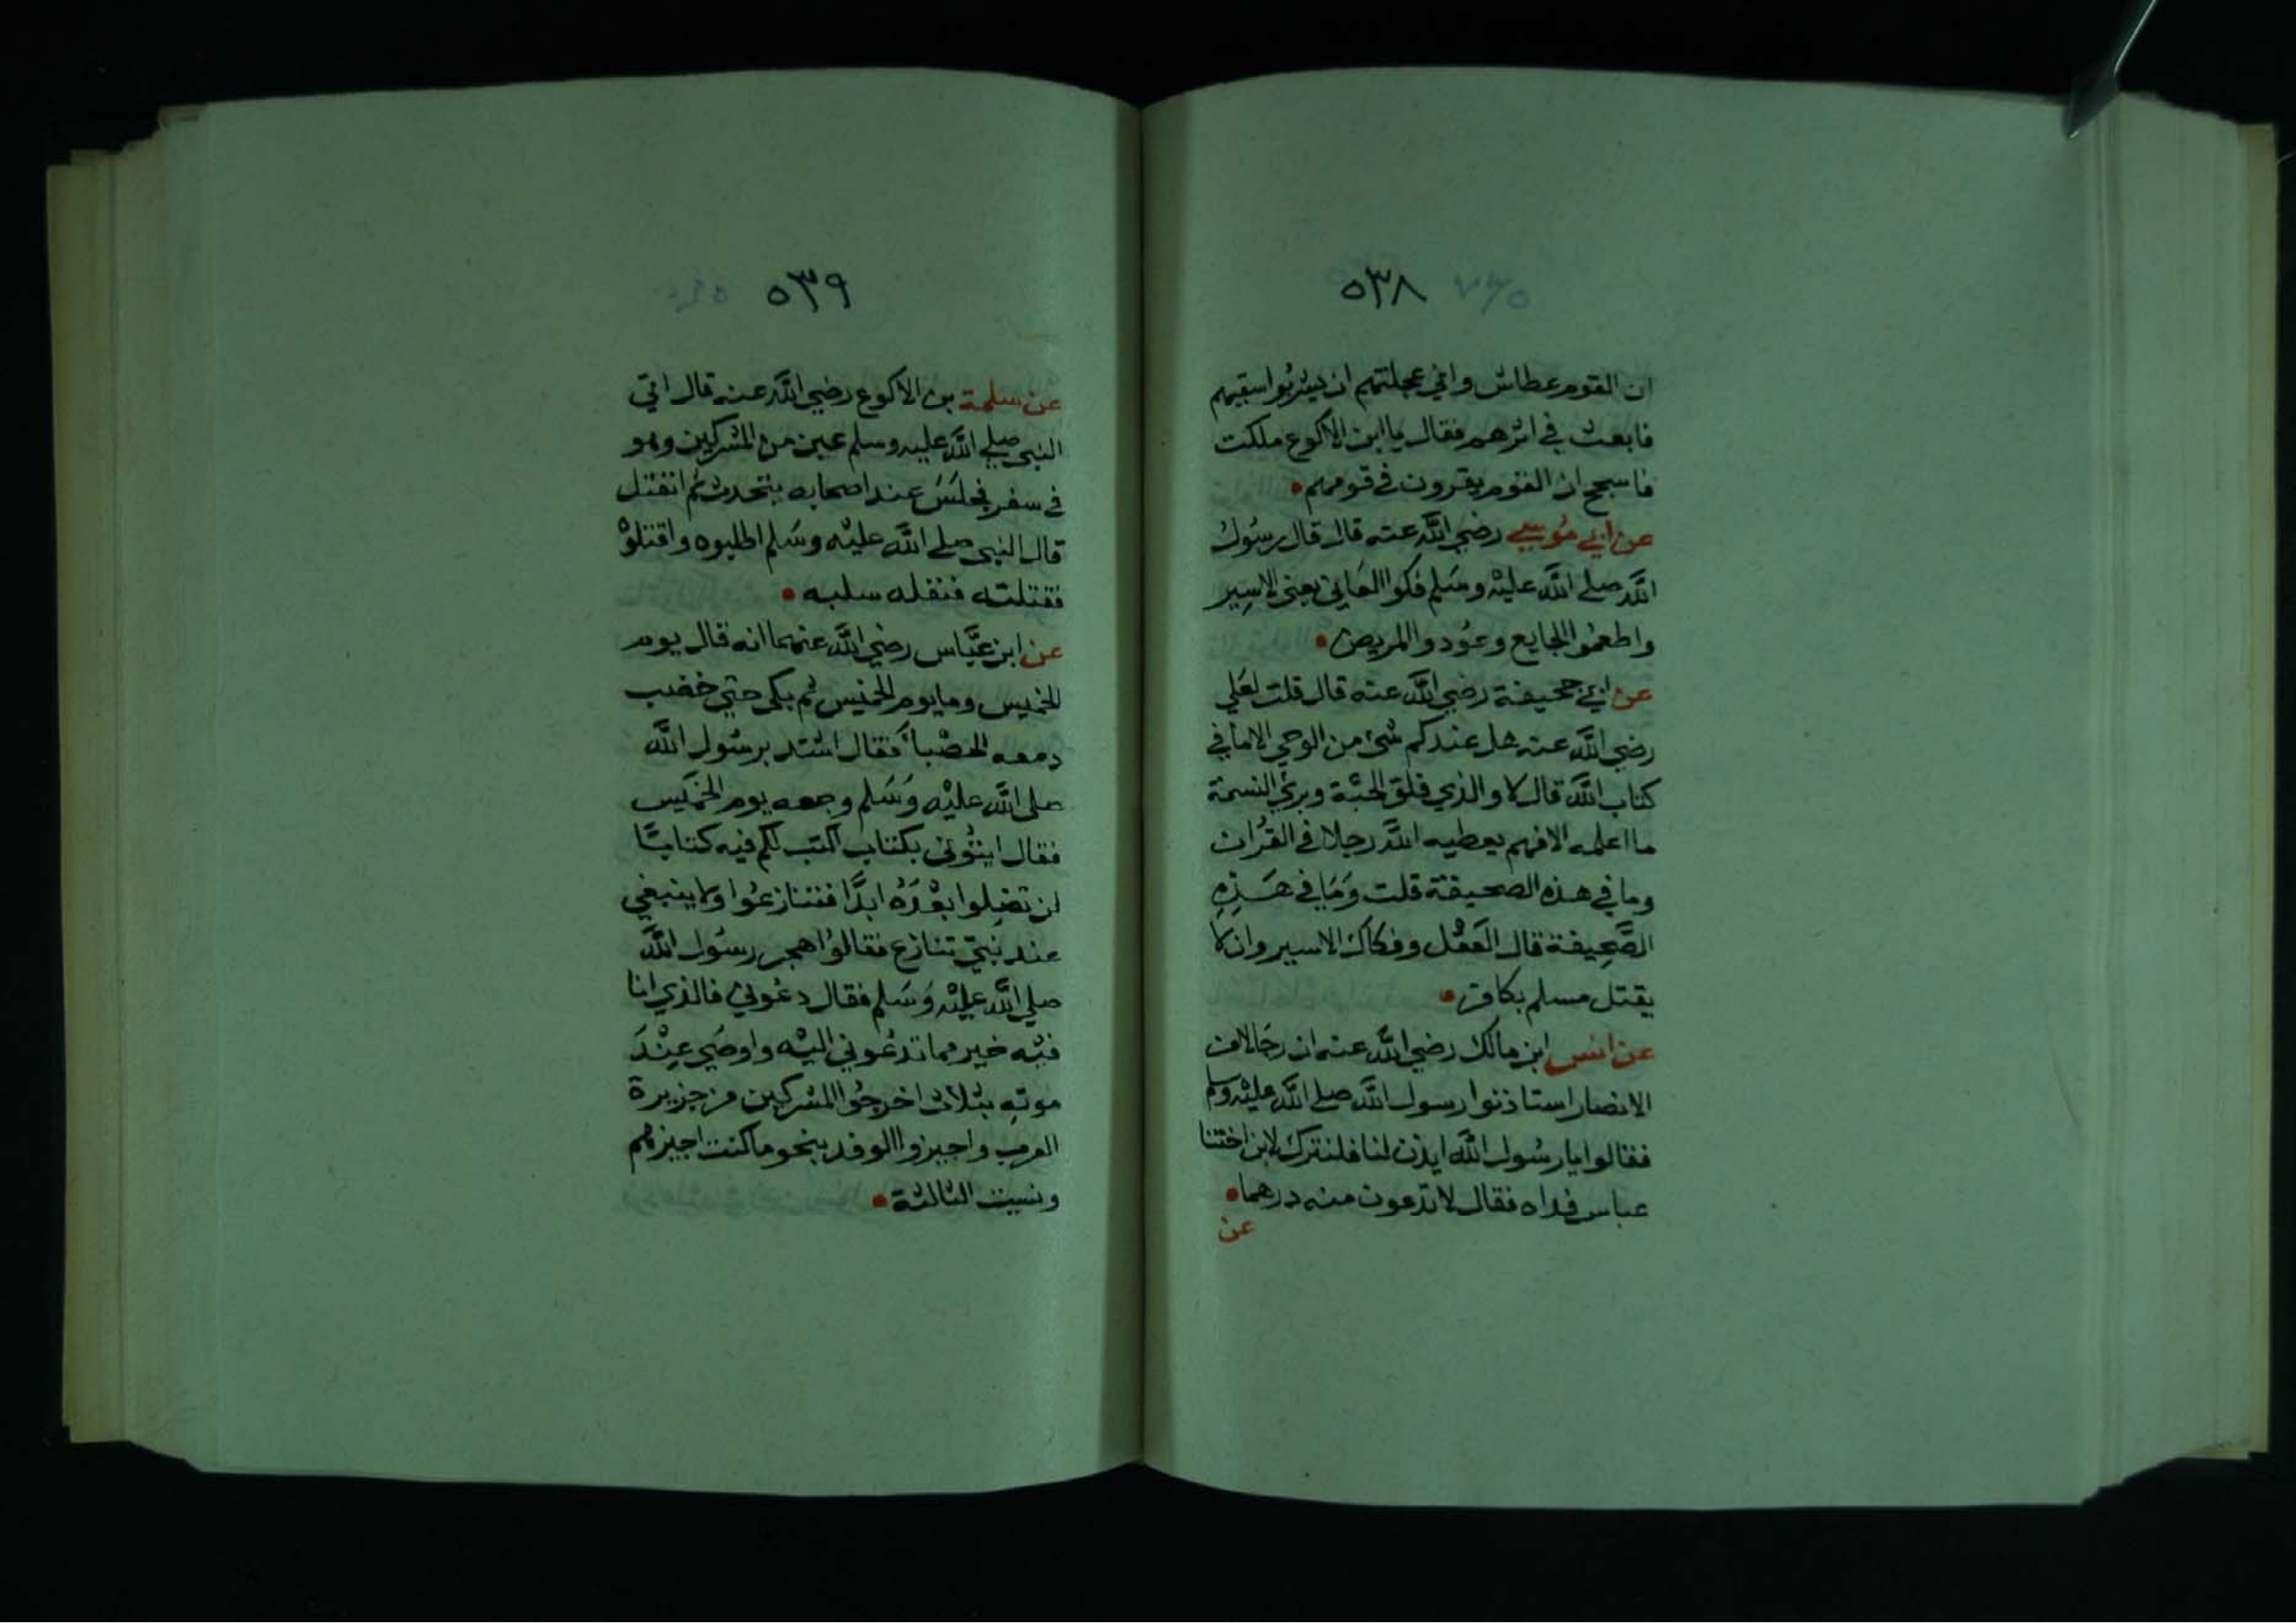 ٥٣٨
ان القوم عطاش واني عجلتهم ان يشربوا سقيهم
فابعث في اثرهم فقال يا ابن الاكوع ملكت
فاسجح ان القوم يقرون في قومهم
عن ابي موسي رضي الله عنه قال قال رسول
الله صلي الله عليه وسلم فكوا العاني يعني الاسير
واطعموا الجايع وعودوا المريض
عن ابي جحيفة رضي الله عنه قال قلت لعلي
رضي الله عنه هل عندكم شئ من الوحي الاما في
كتاب الله قال لا والذي فلق الحبة وبرئ النسمة
ما اعلمه الا فهم يعطيه الله رجلا في القران
وما في هذه الصحيفة قلت وما في هذه
الصحيفة قال العقل وفكاك الاسير وان لا
يقتل مسلم بكافر
عن انس ابن مالك رضي الله عنه ان رجالا من
الانصار استاذنوا رسول الله صلي الله عليه وسلم
فقالوا يا رسول الله ايذن لنا فلنترك لابن اختنا
عباس فداه فقال لا تدعون منه درهما
عن
٥٣٩
عن سلمة بن الاكوع رضي الله عنه قال اتي
النبي صلي الله عليه وسلم عين من المشركين وهو
في سفر فجلس عند اصحابه يتحدث ثم انفتل
قال النبي صلي الله عليه وسلم اطلبوه واقتلوه
فقتلته فنفله سلبه
عن ابن عباس رضي الله عنهما انه قال يوم
الخميس وما يوم الخميس ثم بكى حتي خضب
دمعه الحصبا فقال اشتد برسول الله
صلى الله عليه وسلم وجعه يوم الخميس
فقال ايتوني بكتاب اكتب لكم فيه كتابا
لن تضلوا بعده ابدا فتنازعوا ولا ينبغي
عند نبي تنازع فقالوا هجر رسول الله
صلي الله عليه وسلم فقال دعوني فالذي انا
فيه خير مما تدعوني اليه واوصي عند
موته بثلاث اخرجوا المشركين من جزيرة
العرب واجيزوا الوفد بنحو ما كنت اجيزهم
ونسيت الثالثة